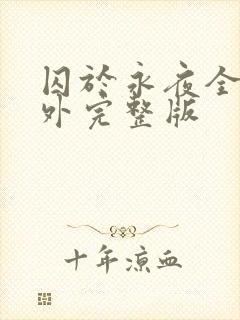 囚於永夜全
外完整版
十年凉血